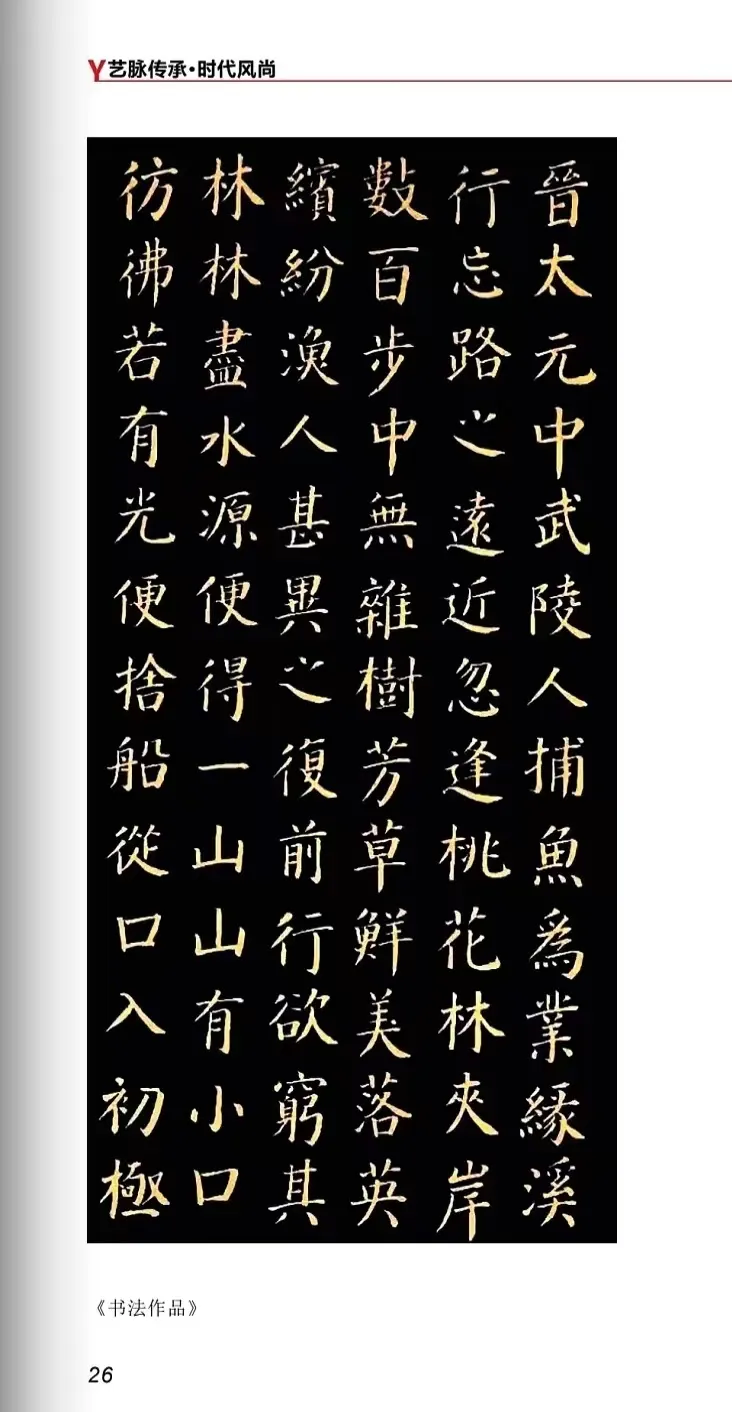 艺脉传承·时代风尚
晉太元中武陵人捕魚爲業緣溪
行忘路之遠近忽逢桃花林夾岸
數百步中無雜樹芳草鮮美落英
繽紛漁人甚異之復前行欲窮其
林林盡水源便得一山山有小口
彷彿若有光便捨船從口入初極
《书法作品》
26